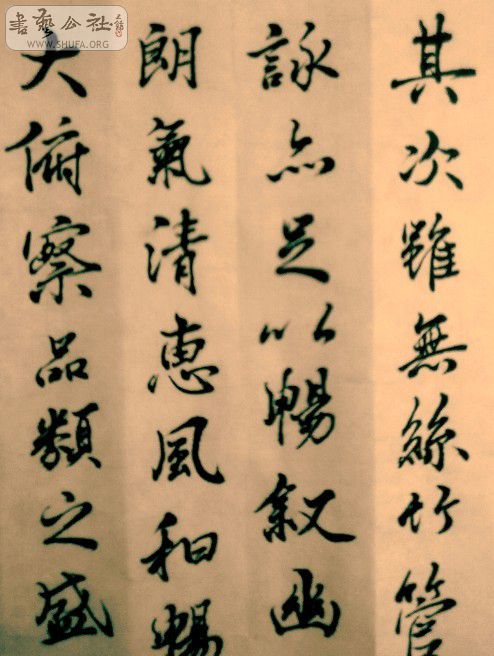 其次雖無絲竹管
詠亦足以暢叙幽
朗氣清惠風和暢
大俯察品類之盛
書藝公社
WWW.SHUFA.ORG